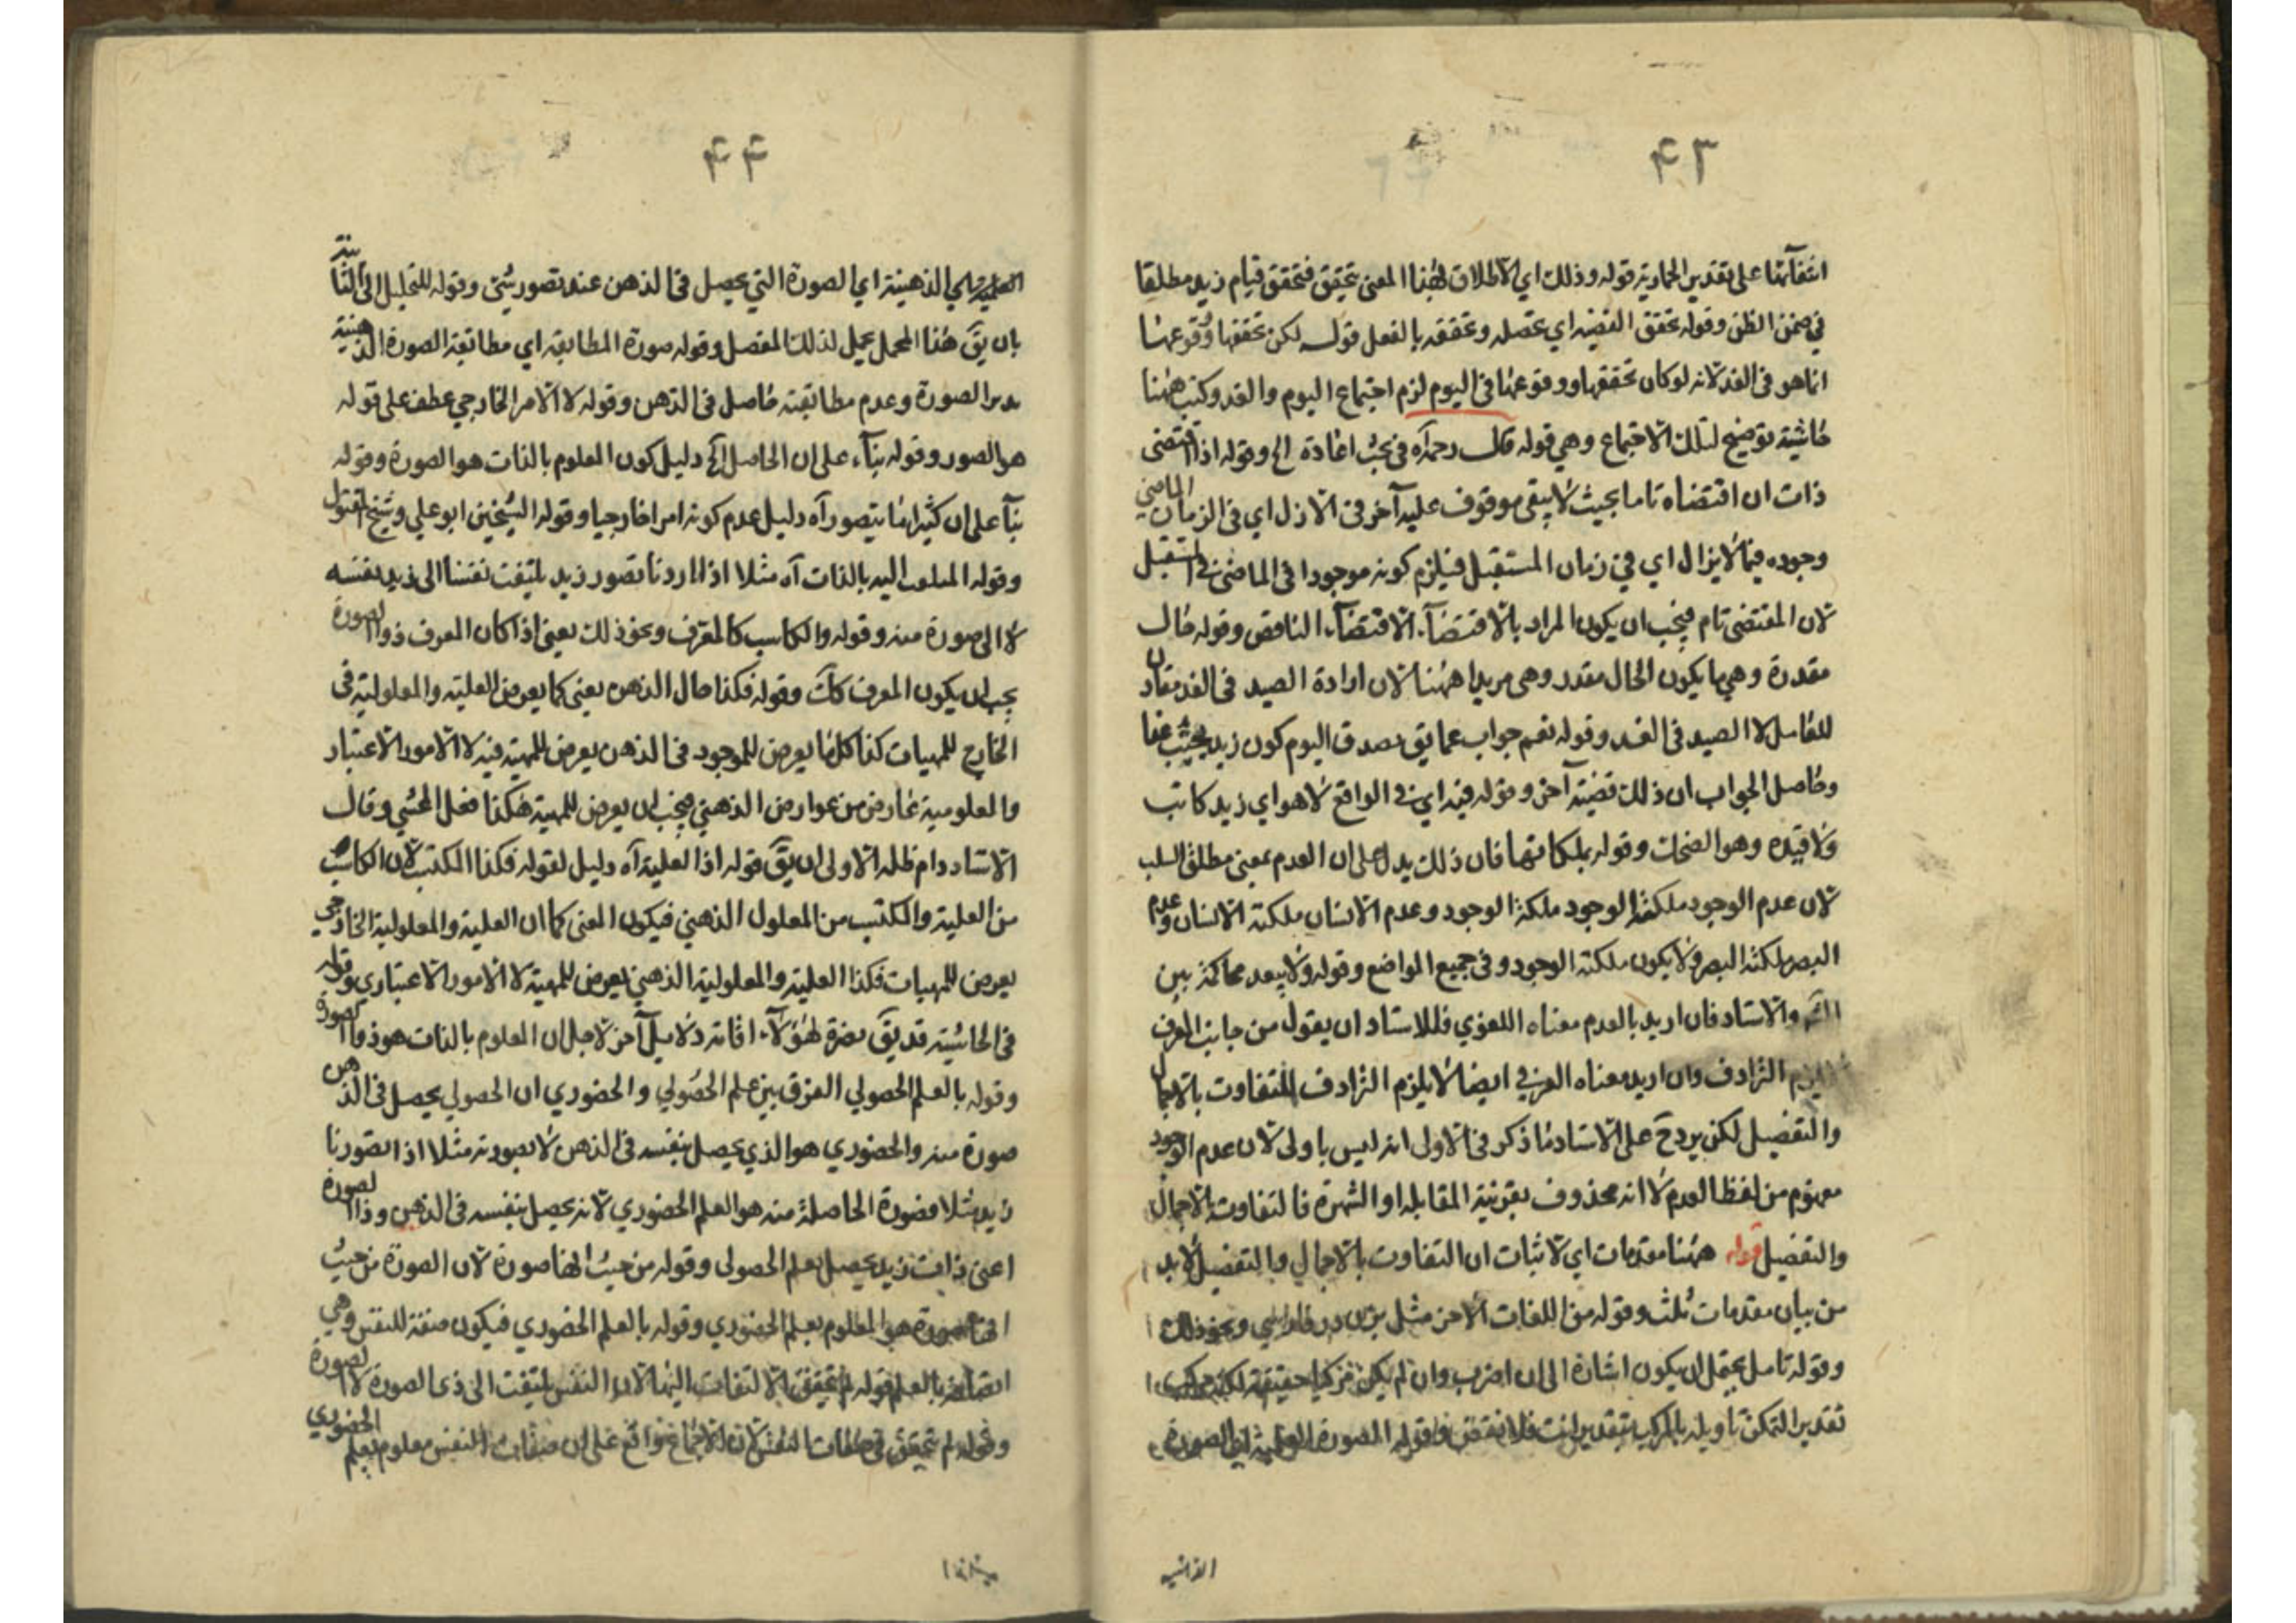 ٤٣
انتفائها على تقدير الحمارية قوله وذلك اي الاطلاق لهذا المعنى تحقيق فتحقق قيام زيد مطلقا
في ضمن الظن وقوله تحقق القضيه اي تحصله وتحققه بالفعل قوله لكن تحققها ووقوعها
انما هو فى الغد لانه لو كان تحققها ووقوعها فى اليوم لزم اجتماع اليوم والغد وكتب ههنا
حاشية توضيح لتلك الاجتماع وهي قوله قال رحمه آه فى بحث اعادة الخ وقوله اذا اقتضى
ذات ان اقتضاه تاما بحيث لا يبقى موقوف عليه آخر فى الازل اي فى الزمان الماضي
وجوده فيما لا يزال اي في زمان المستقبل فيلزم كونه موجودا فى الماضى فى المستقبل
لان المقتضى تام فيجب ان يكون المراد بالاقتضآء الاقتضآء الناقص وقوله حال
مقدرة وهي ما يكون الحال مقدر وهى مريدا ههنا لان ارادة الصيد فى الغد مقارن
للعامل لا الصيد فى الغد وقوله نعم جواب عما يق يصدق اليوم كون زيد بحيث غدا
وحاصل الجواب ان ذلك قضية آخر وقوله فيه اي فى الواقع لا هو اي زيد كاتب
ولا قيده وهو الضحك وقوله بملكاتها فان ذلك يدل على ان العدم بمعنى مطلق السلب
لان عدم الوجود ملكته الوجود ملكة الوجود وعدم الانسان ملكته الانسان وعدم
البصر ملكته البصر ولا يكون ملكته الوجود وفى جميع المواضع وقوله ولا يبعد محاكمة بين
والاستاد فان اريد بالعدم معناه اللغوي فللاستاد ان يقول من جانب المعرف
الترادف وان اريد معناه العرفي ايضا لا يلزم الترادف للتفاوت بالاجمال
والتفصيل لكن يرد ح على الاستاد ما ذكر فى الاولى انه ليس باولى لان عدم الوجود
مفهوم من لفظ العدم لا انه محذوف بقرينة المقابله او الشهرة فالتفاوت بالاجمال
والتفصيل قوله ههنا مقدمات اي لاثبات ان التفاوت بالاجمال وبالتفصيل لا بد
من بيان مقدمات ثلث وقوله من اللغات الاخر مثل بزن در فارسي ونحو ذلك
وقوله تامل يحتمل ان يكون اشارة الى ان اضرب وان لم يكن مركبا حقيقة لكنه
تقدير التمكن تاويله بالمركب بتقدير انت فلا نقض وقوله الصورة العلمية اي الصورة
الذهنيه
٤٤
الذهنية اي الصورة التي يحصل فى الذهن عند تصور شئ وقوله للتحليل الى الثانية
بان يقَ هذا المجمل يحمل لذلك المفصل وقوله صورة المطابقه اي مطابقة الصورة الذهنية
الصورة وعدم مطابقته حاصل فى الذهن وقوله لا الامر الخارجي عطف على قوله
هو الصور وقوله بنآء على ان الحاصل الخ دليل كون المعلوم بالذات هو الصورة وقوله
بنآ على ان كثيرا ما يتصور آه دليل عدم كونه امرا خارجيا وقوله الشيخين ابو علي وشيخ المقتول
وقوله الملتفت اليه بالذات آه مثلا اذا اردنا تصور زيد يلتفت نفسنا الى زيد بنفسه
لا الى صورة منه وقوله والكاسب كالمعرف ونحو ذلك يعنى اذا كان المعرف ذو الصورة
يجب ان يكون المعرف كك وقوله فكذا حال الذهن يعنى كما يعرض العلية والمعلولية فى
الخارج للمهيات كذا كلما يعرض للموجود فى الذهن يعرض للمهية فيه لا الامور الاعتبار
والمعلومية عارض من عوارض الذهني فيجب ان يعرض للمهية هكذا فعل المحشي وقال
الاستاد دام ظله الاولى ان يقَ قوله اذا العلية آه دليل لقوله فكذا المكتسب لان الكاسب
من العلية والمكتسب من المعلول الذهني فيكون المعنى كما ان العلية والمعلولية الخارجي
يعرض للمهيات فكذا العلية والمعلولية الذهني يعرض للمهية لا الامور الاعتباري وقوله
فى الحاشية قد يقَ نصرة لهؤلآء افاته دلايل آخر لاجل ان المعلوم بالذات هو ذو الصورة
وقوله بالعلم الحصولي الفرق بين علم الحصولي والحضوري ان الحصولي يحصل فى الذهن
صورة منه والحضوري هو الذي يحصل بنفسه فى الذهن لا بصورته مثلا اذا تصورنا
زيد مثلا فصورة الحاصلة منه هو العلم الحضوري لانه يحصل بنفسه فى الذهن وذا الصورة
اعنى ذات زيد يحصل بعلم الحصولى وقوله من حيث انها صورة لان الصورة من حيث
انها صورة هو المعلوم بعلم الحضوري وقوله بالعلم الحضوري فيكون صفة للنفس وهي
بالعلم قوله لم يتحقق الالتفات اليها لان النفس يلتفت الى ذى الصورة لا الصورة
وقوله لم يتحقق فى صفات النفس لان الاجماع واقع على ان صفات النفس معلوم بعلم الحضوري